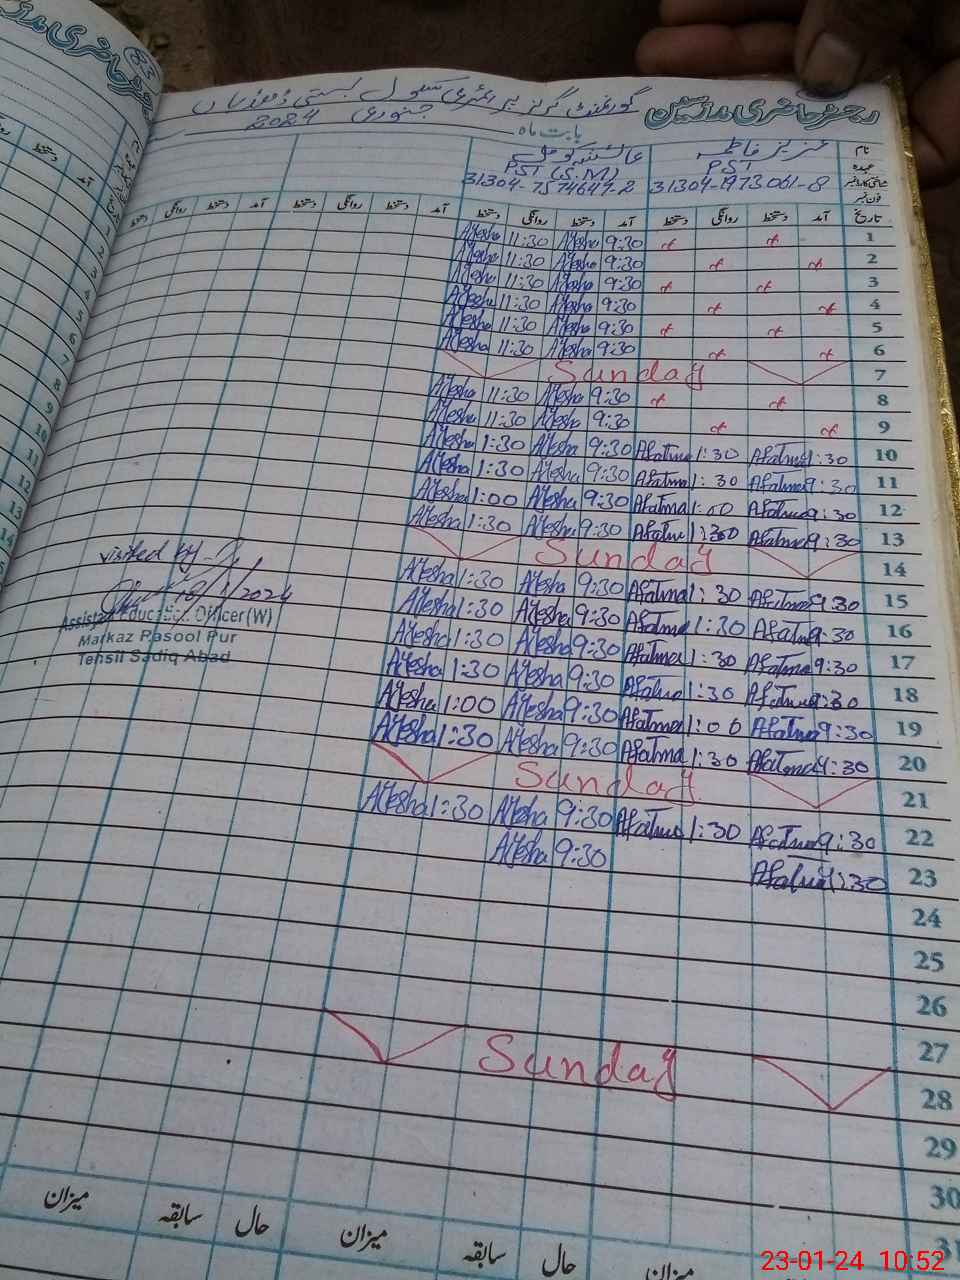 رجسٹر حاضری مدرسین
گورنمنٹ گرلز پرائمری سکول بستی
بابت ماہ جنوری 2024
نام
عہدہ PST PST (S.M)
شناختی کارڈ نمبر 31304-1973061-8 31304-7574647-2
فون نمبر
تاریخ آمد دستخط روانگی دستخط آمد دستخط روانگی دستخط آمد دستخط روانگی دستخط آمد دستخط روانگی دستخط
1 9:30 Ayesha 11:30 Ayesha
2 9:30 Ayesha 11:30 Ayesha
3 9:30 Ayesha 11:30 Ayesha
4 9:30 Ayesha 11:30 Ayesha
5 9:30 Ayesha 11:30 Ayesha
6 9:30 Ayesha 11:30 Ayesha
7 Sunday
8 9:30 Ayesha 11:30 Ayesha
9 9:30 Ayesha 11:30 Ayesha
10 9:30 Afatma 1:30 Afatma 9:30 Ayesha 1:30 Ayesha
11 9:30 Afatma 1:30 Afatma 9:30 Ayesha 1:30 Ayesha
12 9:30 Afatma 1:00 Afatma 9:30 Ayesha 1:00 Ayesha
13 9:30 Afatma 1:30 Afatma 9:30 Ayesha 1:30 Ayesha
14 Sunday
15 9:30 Afatma 1:30 Afatma 9:30 Ayesha 1:30 Ayesha
16 9:30 Afatma 1:30 Afatma 9:30 Ayesha 1:30 Ayesha
17 9:30 Afatma 1:30 Afatma 9:30 Ayesha 1:30 Ayesha
18 9:30 Afatma 1:30 Afatma 9:30 Ayesha 1:30 Ayesha
19 9:30 Afatma 1:00 Afatma 9:30 Ayesha 1:00 Ayesha
20 9:30 Afatma 1:30 Afatma 9:30 Ayesha 1:30 Ayesha
21 Sunday
22 9:30 Afatma 1:30 Afatma 9:30 Ayesha 1:30 Ayesha
23 9:30 Afatma 9:30 Ayesha
24
25
26
27
28 Sunday
29
30
31
visited by
Assistant Education Officer (W)
Markaz Rasool Pur
Tehsil Sadiq Abad
میزان حال سابقہ میزان حال سابقہ میزان
23-01-24 10:52